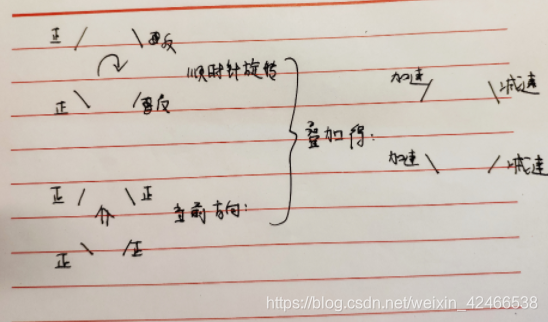 正 / \ 反
顺时针旋转
正 \ / 反
叠加得:
加速 / \ 减速
加速 \ / 减速
正 / \ 正
当前方向:
正 \ / 正
https://blog.csdn.net/weixin_42466538